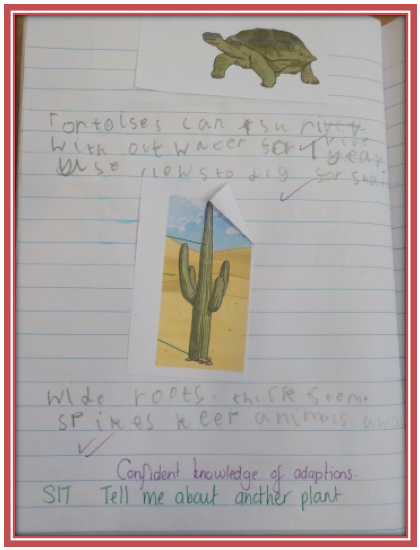 Tortoises can survive
with out water for 1 year
use claws to dig for shade
wide roots. thick stems
spikes keep animals away
Confident knowledge of adaptions.
SIT Tell me about another plant